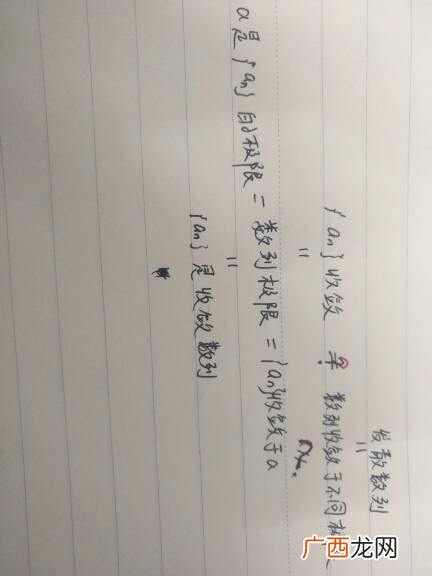 发散数列
=
{an}收敛 ≠ 数列收敛于不同极
?
=
a是{an}的极限 = 数列极限 = {an}收敛于a
=
{an}是收敛数列
广西龙网